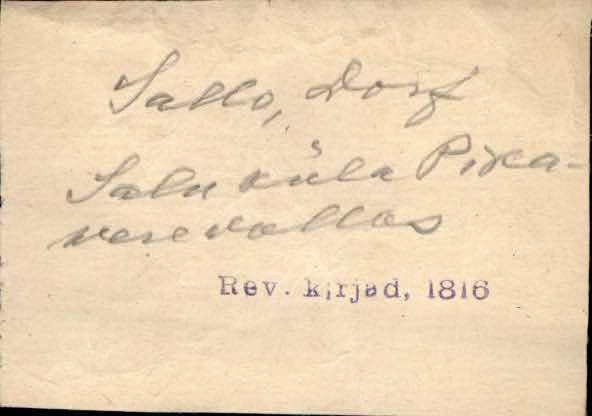 Sallo, Dorf
Salu küla Pika-
vere vallas
Rev. kirjad, 1816